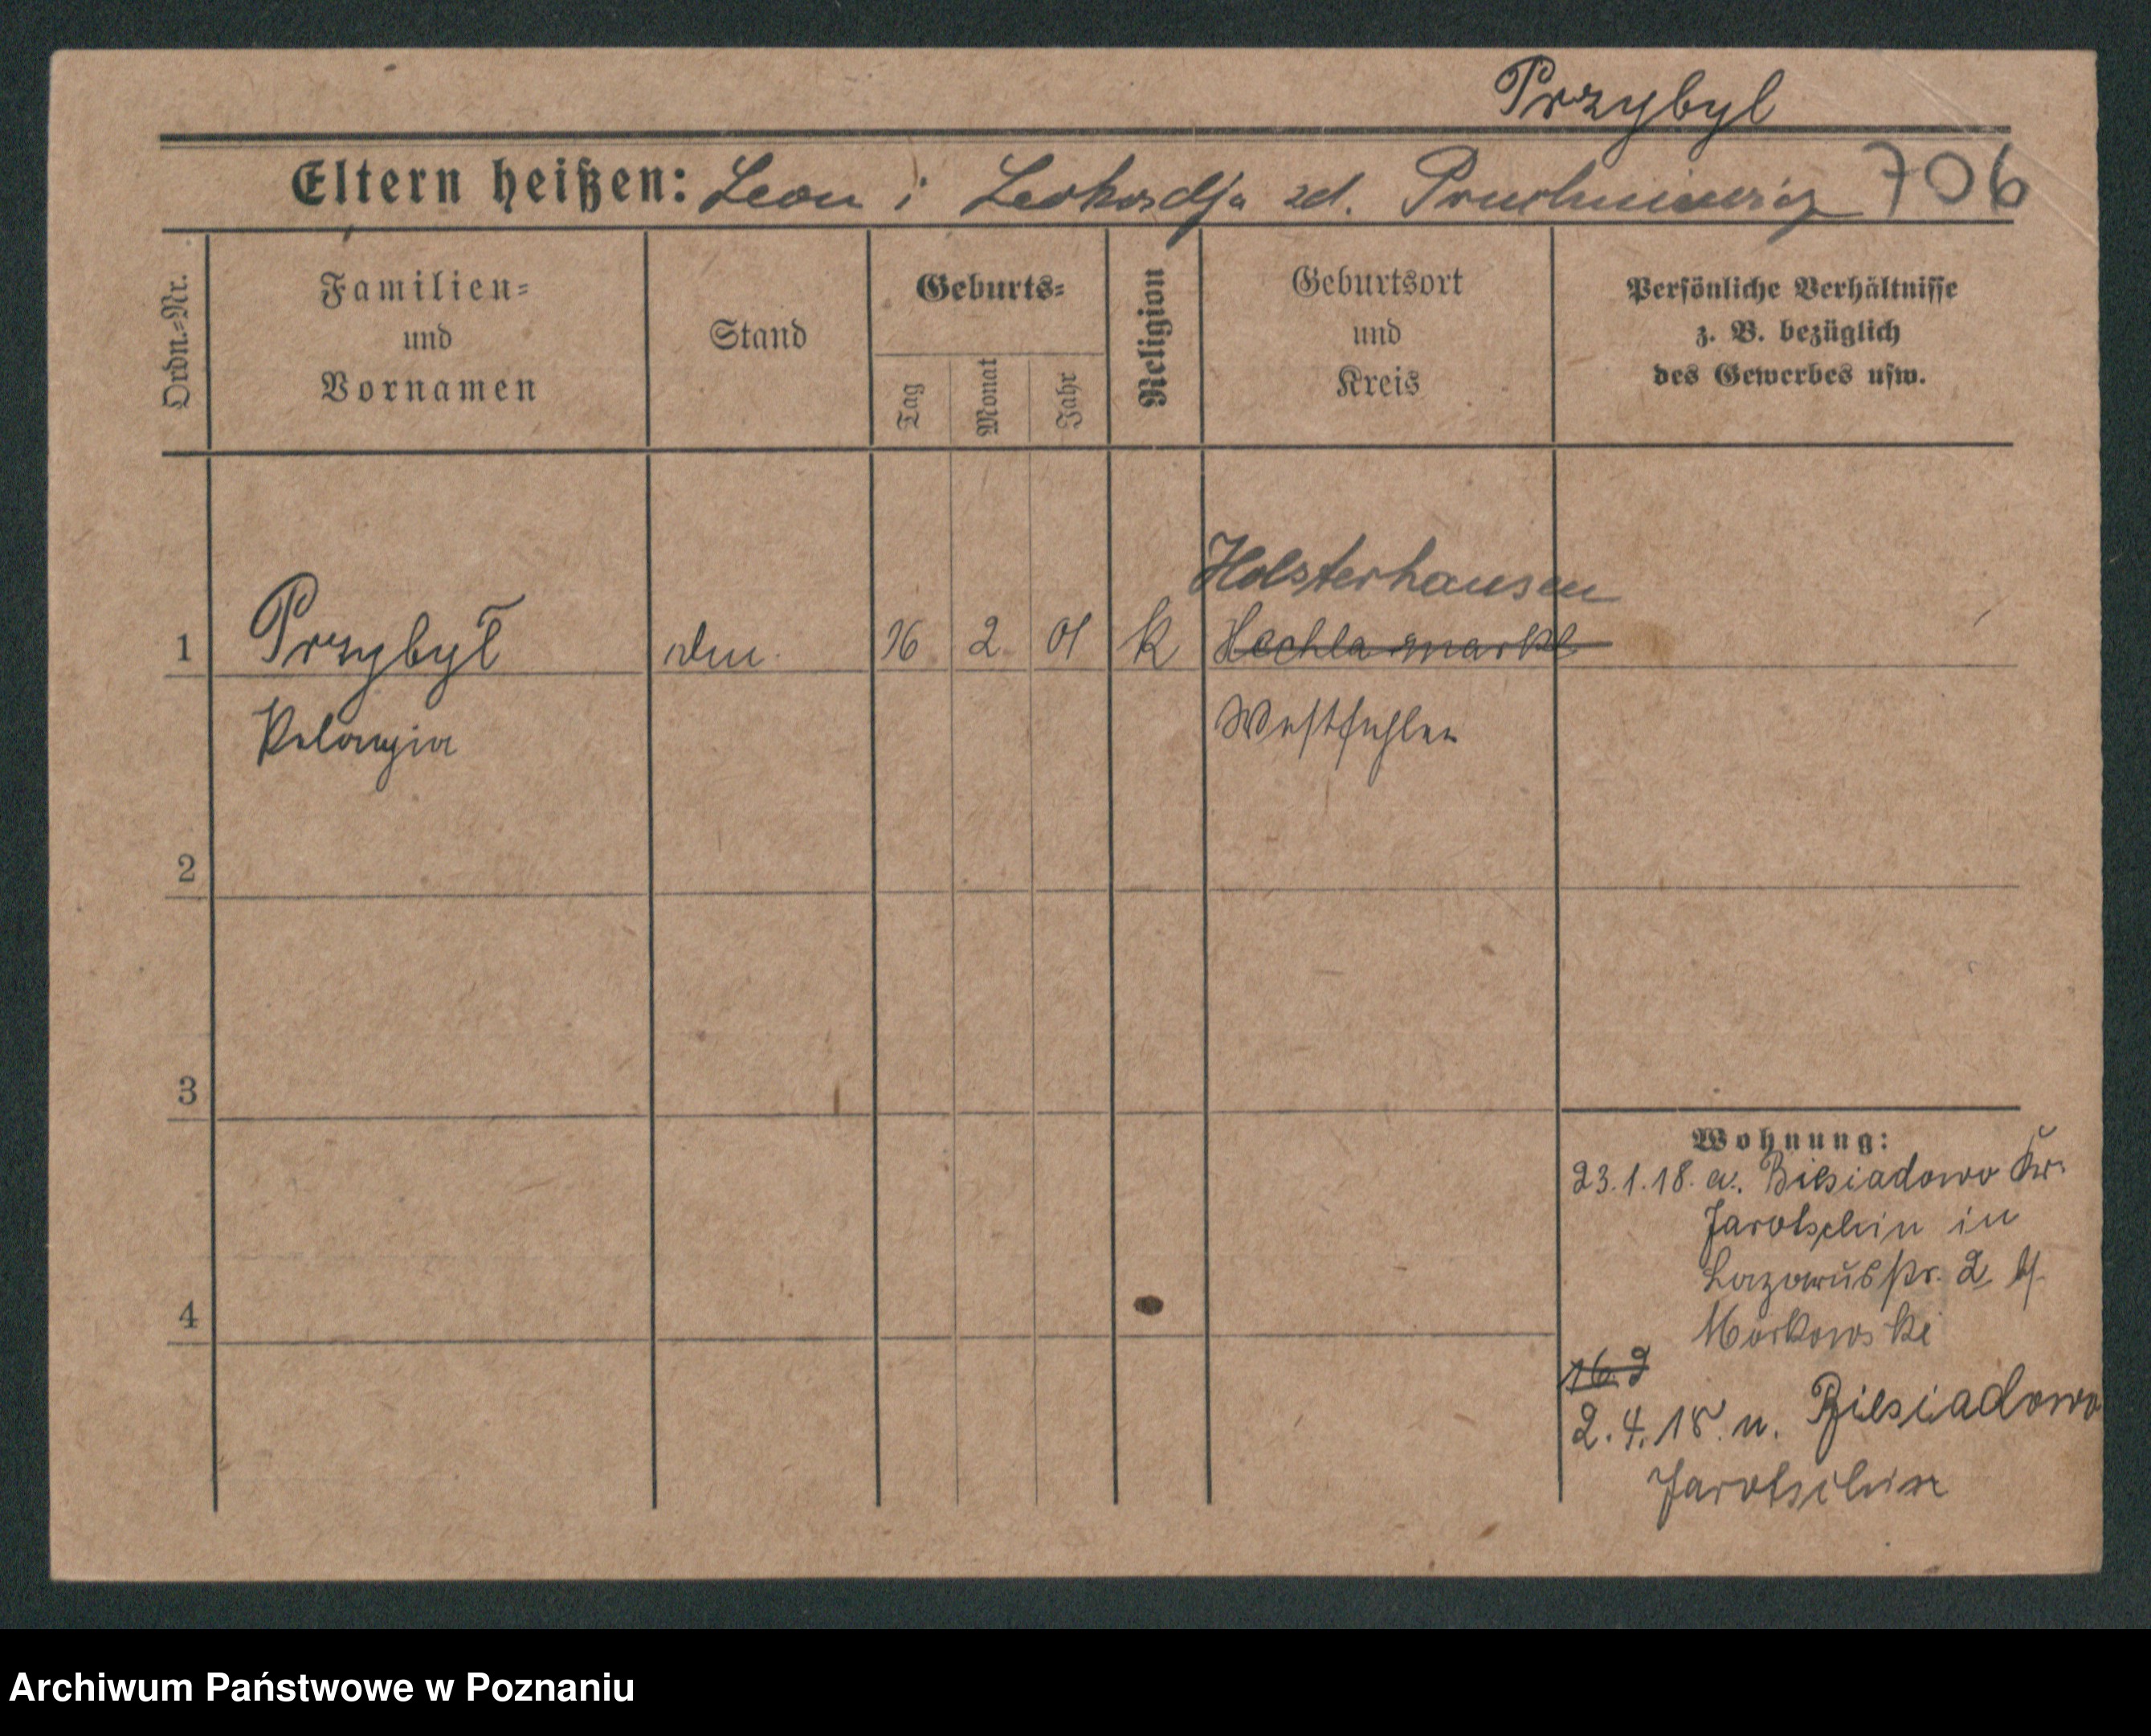 Przybyl
Eltern heißen: Leon i Leokardja zd. 706
Ordn.=Nr.
Familien=
und
Vornamen
Stand
Geburts=
Tag
Monat
Jahr
Religion
Geburtsort
und
Kreis
Persönliche Verhältnisse
z. B. bezüglich
des Gewerbes usw.
Holsterhausen
1 Przybył 16 2 01 k
Pelagia Westfahlen
2
3
Wohnung:
23.1.18. a. Biesiadowo Kr.
Jarotschin in
Lazarusstr. 2 b/
4
16.2
2.4.18. n. Biesiadowo
Jarotschin
Archiwum Państwowe w Poznaniu